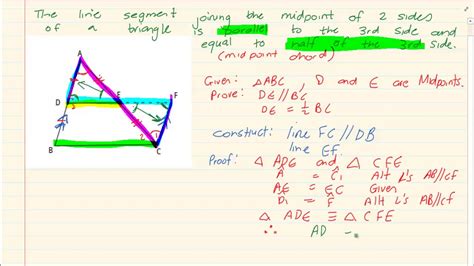 The line segment joining the midpoint of 2 sides
of a triangle is parallel to the 3rd side and
equal to half of the 3rd side.
(midpoint chord)
A
D
E
F
B
C
1
2
1
2
1
2
Given: △ABC, D and E are Midpoints.
Prove: DE // BC
DE = ½ BC
construct: line FC // DB
line EF.
Proof: △ ADE and △ CFE
Â = Ĉ₁ Alt L's AB//CF
AE = EC Given
D̂₁ = F̂ Alt L's AB//CF
△ ADE ≡ △ CFE
∴ AD -